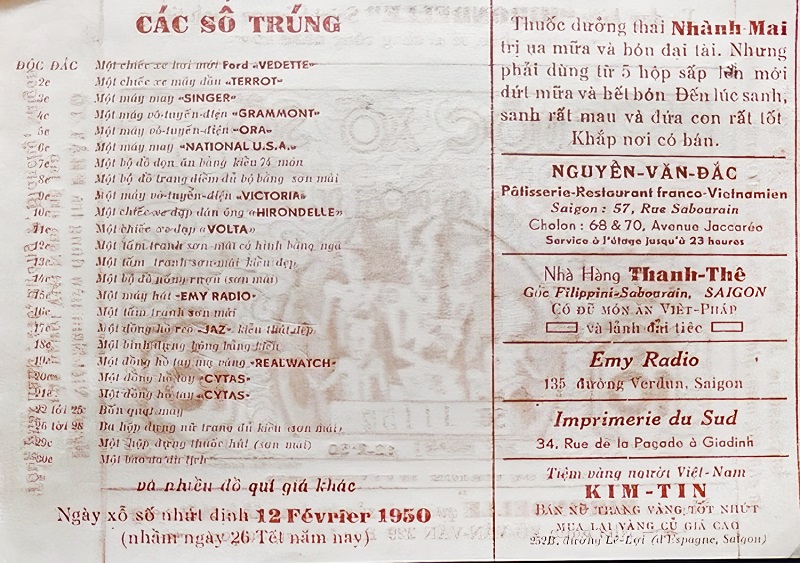 CÁC SỐ TRÚNG
ĐỘC ĐẮC Một chiếc xe hơi mới Ford «VEDETTE»
2c Một chiếc xe máy dầu «TERROT»
3c Một máy may «SINGER»
4c Một máy vô-tuyến-điện «GRAMMONT»
5c Một máy vô-tuyến-điện «ORA»
6c Một máy may «NATIONAL U.S.A.»
7c Một bộ đồ dọn ăn bằng kiểu 74 món
8c Một bộ đồ trang điểm đủ bộ bằng sơn mài
9c Một máy vô-tuyến-điện «VICTORIA»
10c Một chiếc xe đạp đàn ông «HIRONDELLE»
11c Một chiếc xe đạp «VOLTA»
12c Một tấm tranh sơn-mài có hình bằng ngà
13c Một tấm tranh sơn-mài kiểu đẹp
14c Một bộ đồ uống rượu (sơn mài)
15c Một máy hát «EMY RADIO»
16c Một tấm tranh sơn mài
17c Một đồng hồ reo «JAZ» kiểu thật đẹp
18c Một bình đựng bông bằng kiểu
19c Một đồng hồ tay mạ vàng «REALWATCH»
20c Một đồng hồ tay «CYTAS»
21c Một đồng hồ tay «CYTAS»
22 tới 25: Bốn quạt máy
26 tới 28 Ba hộp đựng nữ trang đủ kiểu (sơn mài)
29c Một hộp đựng thuốc hút (sơn mài)
30c Một bao da du lịch
và nhiều đồ quí giá khác
Ngày xổ số nhứt định 12 Février 1950
(nhằm ngày 26 Tết năm nay)
Thuốc dưỡng thai Nhành Mai
trị ụa mữa và bón đại tài. Nhưng
phải dùng từ 5 hộp sấp lên mới
dứt mữa và hết bón Đến lúc sanh,
sanh rất mau và đứa con rất tốt
Khắp nơi có bán.
NGUYỄN-VĂN-ĐẮC
Pâtisserie-Restaurant franco-Vietnamien
Saigon : 57, Rue Sabourain
Cholon : 68 & 70, Avenue Jaccaréo
Service à l'étage jusqu'à 23 heures
Nhà Hàng Thanh-Thế
Góc Filippini-Sabourain, SAIGON
CÓ ĐỦ MÓN ĂN VIỆT-PHÁP
và lảnh đãi tiệc
Emy Radio
135 đường Verdun, Saigon
Imprimerie du Sud
34, Rue de la Pagode à Giadinh
Tiệm vàng người Việt-Nam
KIM-TÍN
BÁN NỮ TRANG VÀNG TỐT NHỨT
MUA LẠI VÀNG CŨ GIÁ CAO
252B, đường Lê-Lợi (d'Espagne, Saigon)